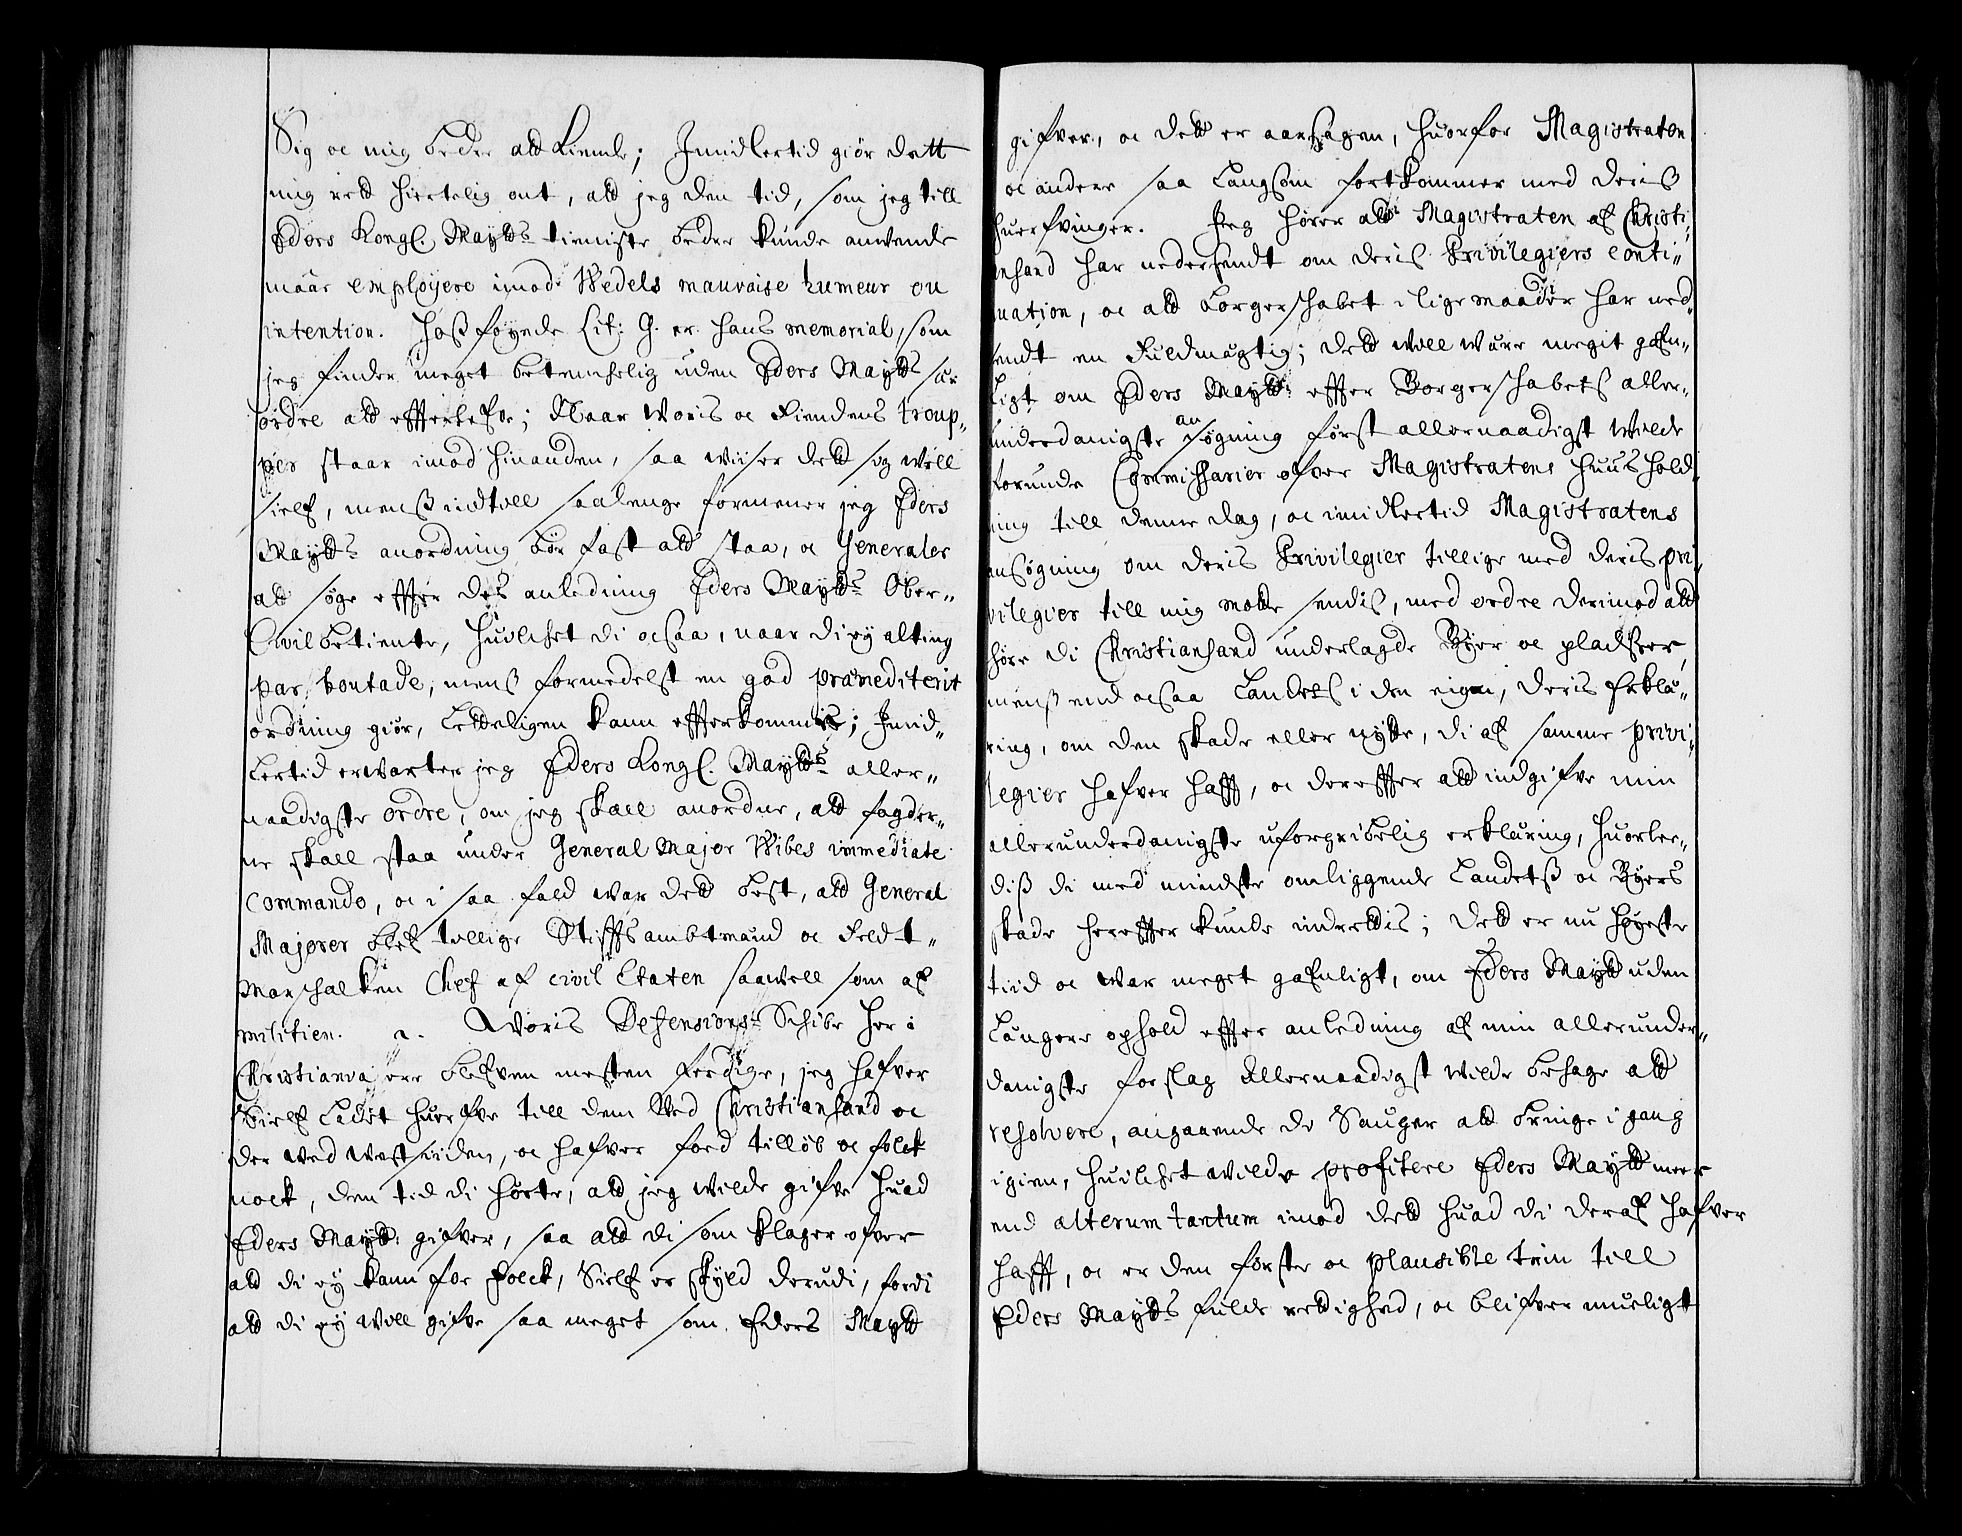 Sig oc mig beder ald Kiende; Imidlertid giør dett
mig ret hiertelig ont, ald jeg den tid, som jeg till
Eders Kongl. Maytts tieniste beder kunde anvende
maar employere imod Wedels mauvaise humeur ou
intention. Hoßføyede Lit: G. er hans memorial, som
jeg finder meget betenchelig uden Eders Maytts
ordre ald effterlefve; Naar Woris oc Fiendens troup-
per staar imod hinanden, saa wiiser dett sig will
sielf, menß indtill saalenge formener jeg Eders
Maytts anordning bør fast ald staa, oc Generaler
ald søge effter des anledning Eders Maytts Ober-
Civilbetiente, huilchet di ocsaa, naar di ey alting
par boutade, menß formedelst en god præmediterit
ordning giør, letteligen kann effterkommis; Imid-
lertid erwarter jeg Eders Kongl. Maytts aller-
naadigste ordre, om jeg skall anordne, ald fogder-
ne skall staa under General Major Wibes immediate
Commando, oc i saa fald war dett best, ald General
Majorer blef tillige Stifftsambtmand oc Feldt-
Marschalken Chef af civil Etaten saawell som af
militien. a. Woris Defensions-Schibe her i
Christiania ere blefven mesten ferdige, jeg hafver
Sielf ladet huerfve till dem Wed Christiansand oc
der wed westsiiden, oc hafver foed tilløb oc folck
nock, den tid di hørte, ald jeg wilde gifve huad
Eders Maytt: gifver, saa ald di som klager ofver
ald di ey kann foe Folck, Sielf er skyld derudi, fordi
ald di ey will gifve saa meget som Eders Maytt
gifver, oc dett er aarsagen, huorfor Magistraten
oc andere saa langsom fortkommer med deris
huerfvinger. Jeg hører ald Magistraten af Christi-
ansand har nedersendt om deris Privilegiers conti-
nuation, oc ald borgerschabet i lige maader har ned
sendt en Fuldmægtig; dett will wære megit gafn-
ligt om Eders Maytt: effter Borgerschabets aller-
underdanigste ansøgning først allernaadigst wilde
forunde Commissarier ofver Magistratens huushold
ning till denne dag, oc imidlertid Magistratens
ansøgning om deris Privilegier tillige med deris pri
vilegier till mig motte sendis, med ordre derimod ald
høre di Christiansand underlagde Byer oc pladser,
menß end ocsaa landet i den eigen, deris Erklæ-
ring, om den skade eller nytte, di af samme privi-
legier hafver hafft, oc dereffter ald indgifve min
allerunderdanigste uforgribelig erklæring, huorle-
diß di med mindste omliggende Landetß oc Byers
skade hereffter kunde inderettis; dett er nu høyeste
tiid oc war meget gafnligt, om Eders Maytt uden
længere ophold effter anledning af min allerunder-
danigste forslag Allernaadigst wilde behage ald
resolvere, angaaende de Sauger ald bringe i gang
igien, huilchet wilde profitere Eders Maytt meer
end alterum tantum imod dett huad di deraf hafver
hafft, oc er den første oc plausible trin till
Eders Maytts fulde rettighed, oc blifver mueligt